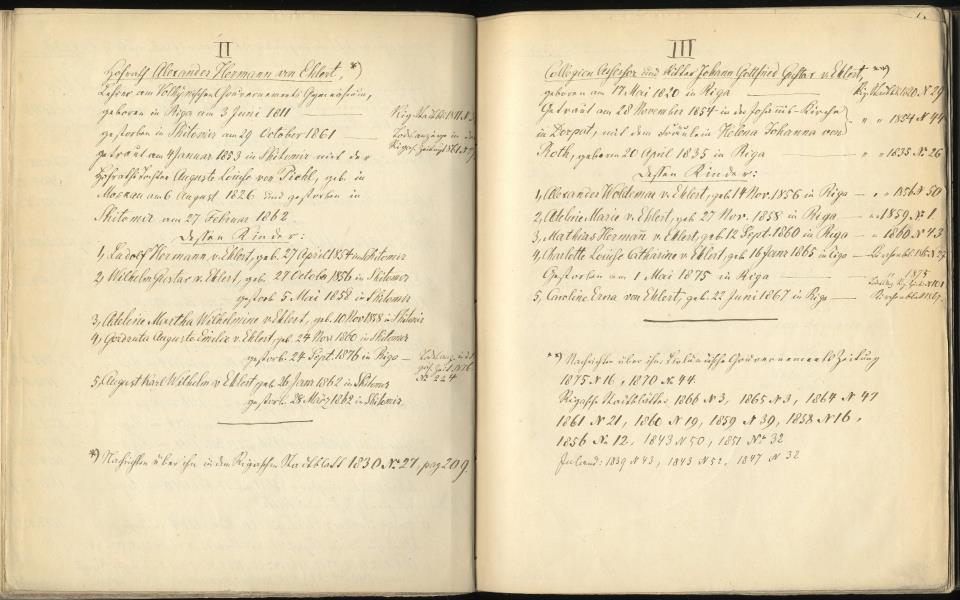 II
Hofrath Alexander Hermann von Ehlert, *)
Lehrer am Volhynischen Gouvernements Gymnasium,
geboren in Riga am 3 Juni 1811
gestorben in Shitomir am 29 October 1861
getraut am 4 Januar 1853 in Shitomir mit der
Hofraths Tochter Auguste Louise von Diehl, geb. in
Moskau am 6 August 1826 und gestorben in
Shitomir am 27 Februar 1862.
Dessen Kinder:
1, Rudolf Hermann v. Ehlert, geb. 27 April 1854 in Shitomir
2, Wilhelm Gustav v. Ehlert, geb. 27 Octob. 1856 in Shitomir
gestorb. 5 Mai 1858 in Shitomir
3, Adeline Martha Wilhelmine v. Ehlert, geb. 10 Nov 1858 in Shitomir
4, Auguste Emilie v. Ehlert, geb. 24 Nov 1860 in Shitomir
gestorb. 24 Sept. 1876 in Riga —
№ 224
5, August Karl Wilhelm v. Ehlert, geb. 26 Janr. 1862 in Shitomir
gestorb. 28 März 1862 in Shitomir.
*) Nachrichten über ihn in dem Rigaschen Stadtblatt 1830 № 27, pag 209.
III
Collegien Assessor und Ritter Johann Gottfried Gustav v. Ehlert, **)
geboren am 17 Mai 1820 in Riga — 1820. № 29
Getraut am 28 November 1854 in der Johannis-Kirche
in Dorpat, mit dem Fräulein Helena Johanna von „ „ 1854 № 44
Roth, geboren 20 April 1835 in Riga — „ „ 1835 № 26
Dessen Kinder:
1, Alexander Woldemar v. Ehlert, geb. 14 Nov. 1856 in Riga — „ „ 1856 № 50
2, Adeline Marie v. Ehlert, geb. 27 Nov. 1858 in Riga — „ 1859 № 1.
3, Mathias Hermann v. Ehlert, geb. 12 Sept. 1860 in Riga — „ 1860 № 43
4, Charlotte Louise Catharine v. Ehlert, geb. 16 Janr 1865 in Riga —
Gestorben am 1 Mai 1875 in Riga — 1875
5, Caroline Erna von Ehlert, geb. 22 Juni 1867 in Riga —
**) Nachrichten über ihn, Livländische Gouvernements Zeitung
1875 № 16, 1870 № 44.
Rigasche Stadtblätter 1866 № 3, 1865 № 3, 1864 № 47
1861 № 21, 1860 № 19, 1859 № 39, 1858 № 16,
1856 № 12, 1843 № 50, 1851 № 32
Inland: 1839 № 43, 1843 № 52, 1847 № 32